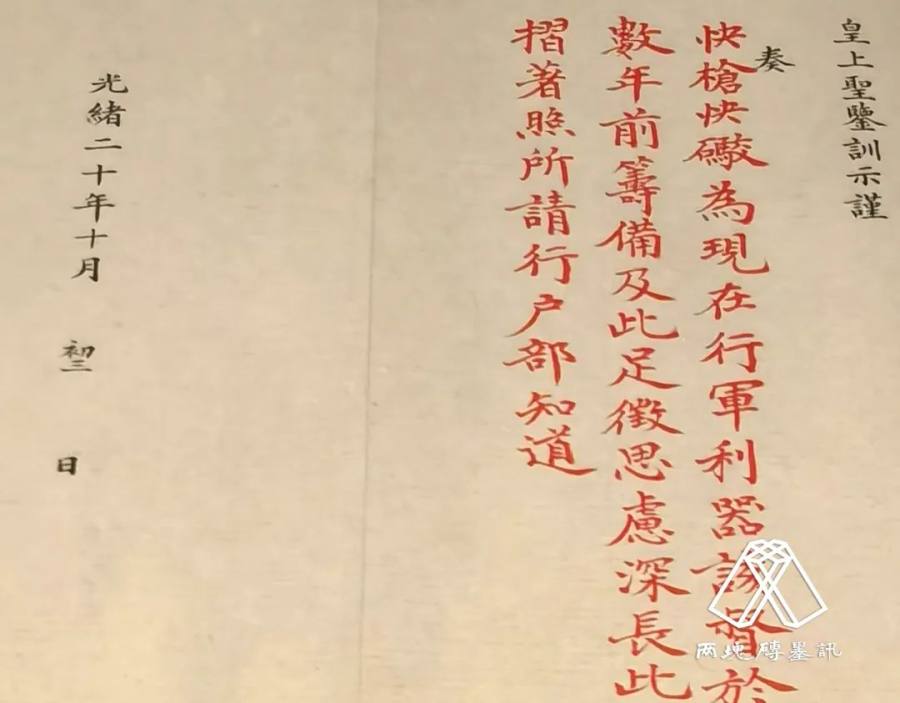 皇上聖鑒訓示謹
奏
快槍快礮為現在行軍利器該督於
數年前籌備及此足徵思慮深長此
摺著照所請行户部知道
光緒二十年十月初三日
兩塊磚墨訊